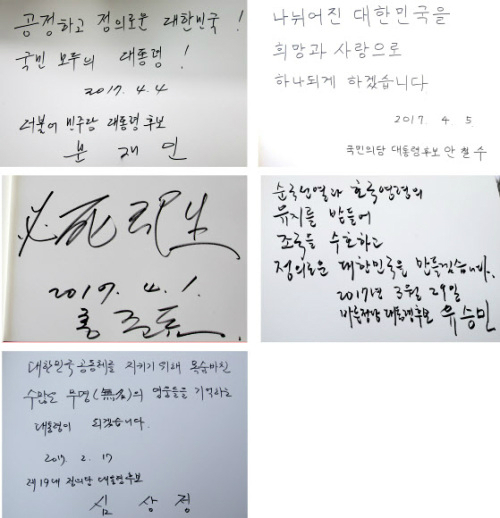 공정하고 정의로운 대한민국!
국민 모두의 대통령!
2017. 4. 4
더불어 민주당 대통령 후보
문재인
나뉘어진 대한민국을
희망과 사랑으로
하나되게 하겠습니다
2017. 4. 5.
국민의당 대통령후보 안철수
必死則生
2017. 4. 1.
홍준표
순국선열과 호국영령의
유지를 받들어
조국을 수호하고
정의로운 대한민국을 만들겠습니다.
2017년 3월 29일
바른정당 대통령후보 유승민
대한민국 공동체를 지키기 위해 목숨바친
수많은 무명(無名)의 영웅들을 기억하는
대통령이 되겠습니다.
2017. 2. 17
제19대 정의당 대통령후보
심상정